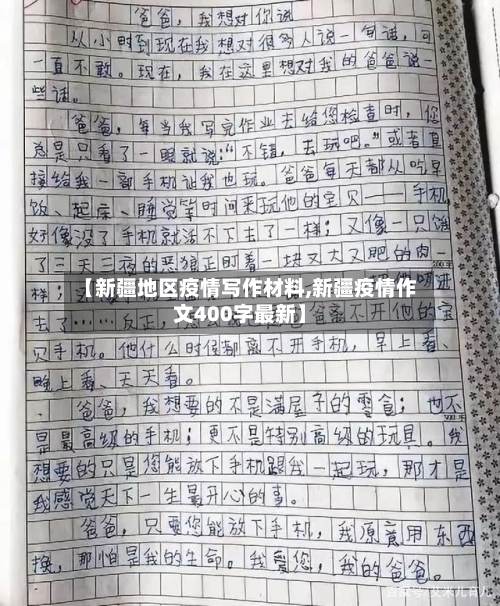 爸爸，我想对你说
从小时到现在我想对很多人说一句话，可
一直不敢。现在，我在这里想对我的爸爸说一
些话。
爸爸，每当我写完作业去给您检查时，您
总是只看了一眼就说："不错，去玩吧。"或者直
接给我一部手机让我也玩。爸爸每天都从吃早
饭、起床、睡觉等时间来玩他的宝贝——手机
好像没了手机就活不下去了一样；又像一只饿
了三天三夜的恶狼正盯着一块又大又肥的肉
【新疆地区疫情写作材料,新疆疫情作
文400字最新】
样；
去了……反正，
爸爸离不开他的宝
贝手机。他什么时候都离不开手机，早上看、
晚上看、天天看。
爸爸，我想要的不是满屋子的零食；也不
是最高级的手机；更不是特别高级的玩具。我
想要的只是您能放下手机跟我一起玩，那才是
我感觉天下一生最开心的事。
爸爸，只要您能放下手机，我愿意用东西
换，那怕是我的生命。我爱您，我的爸爸。